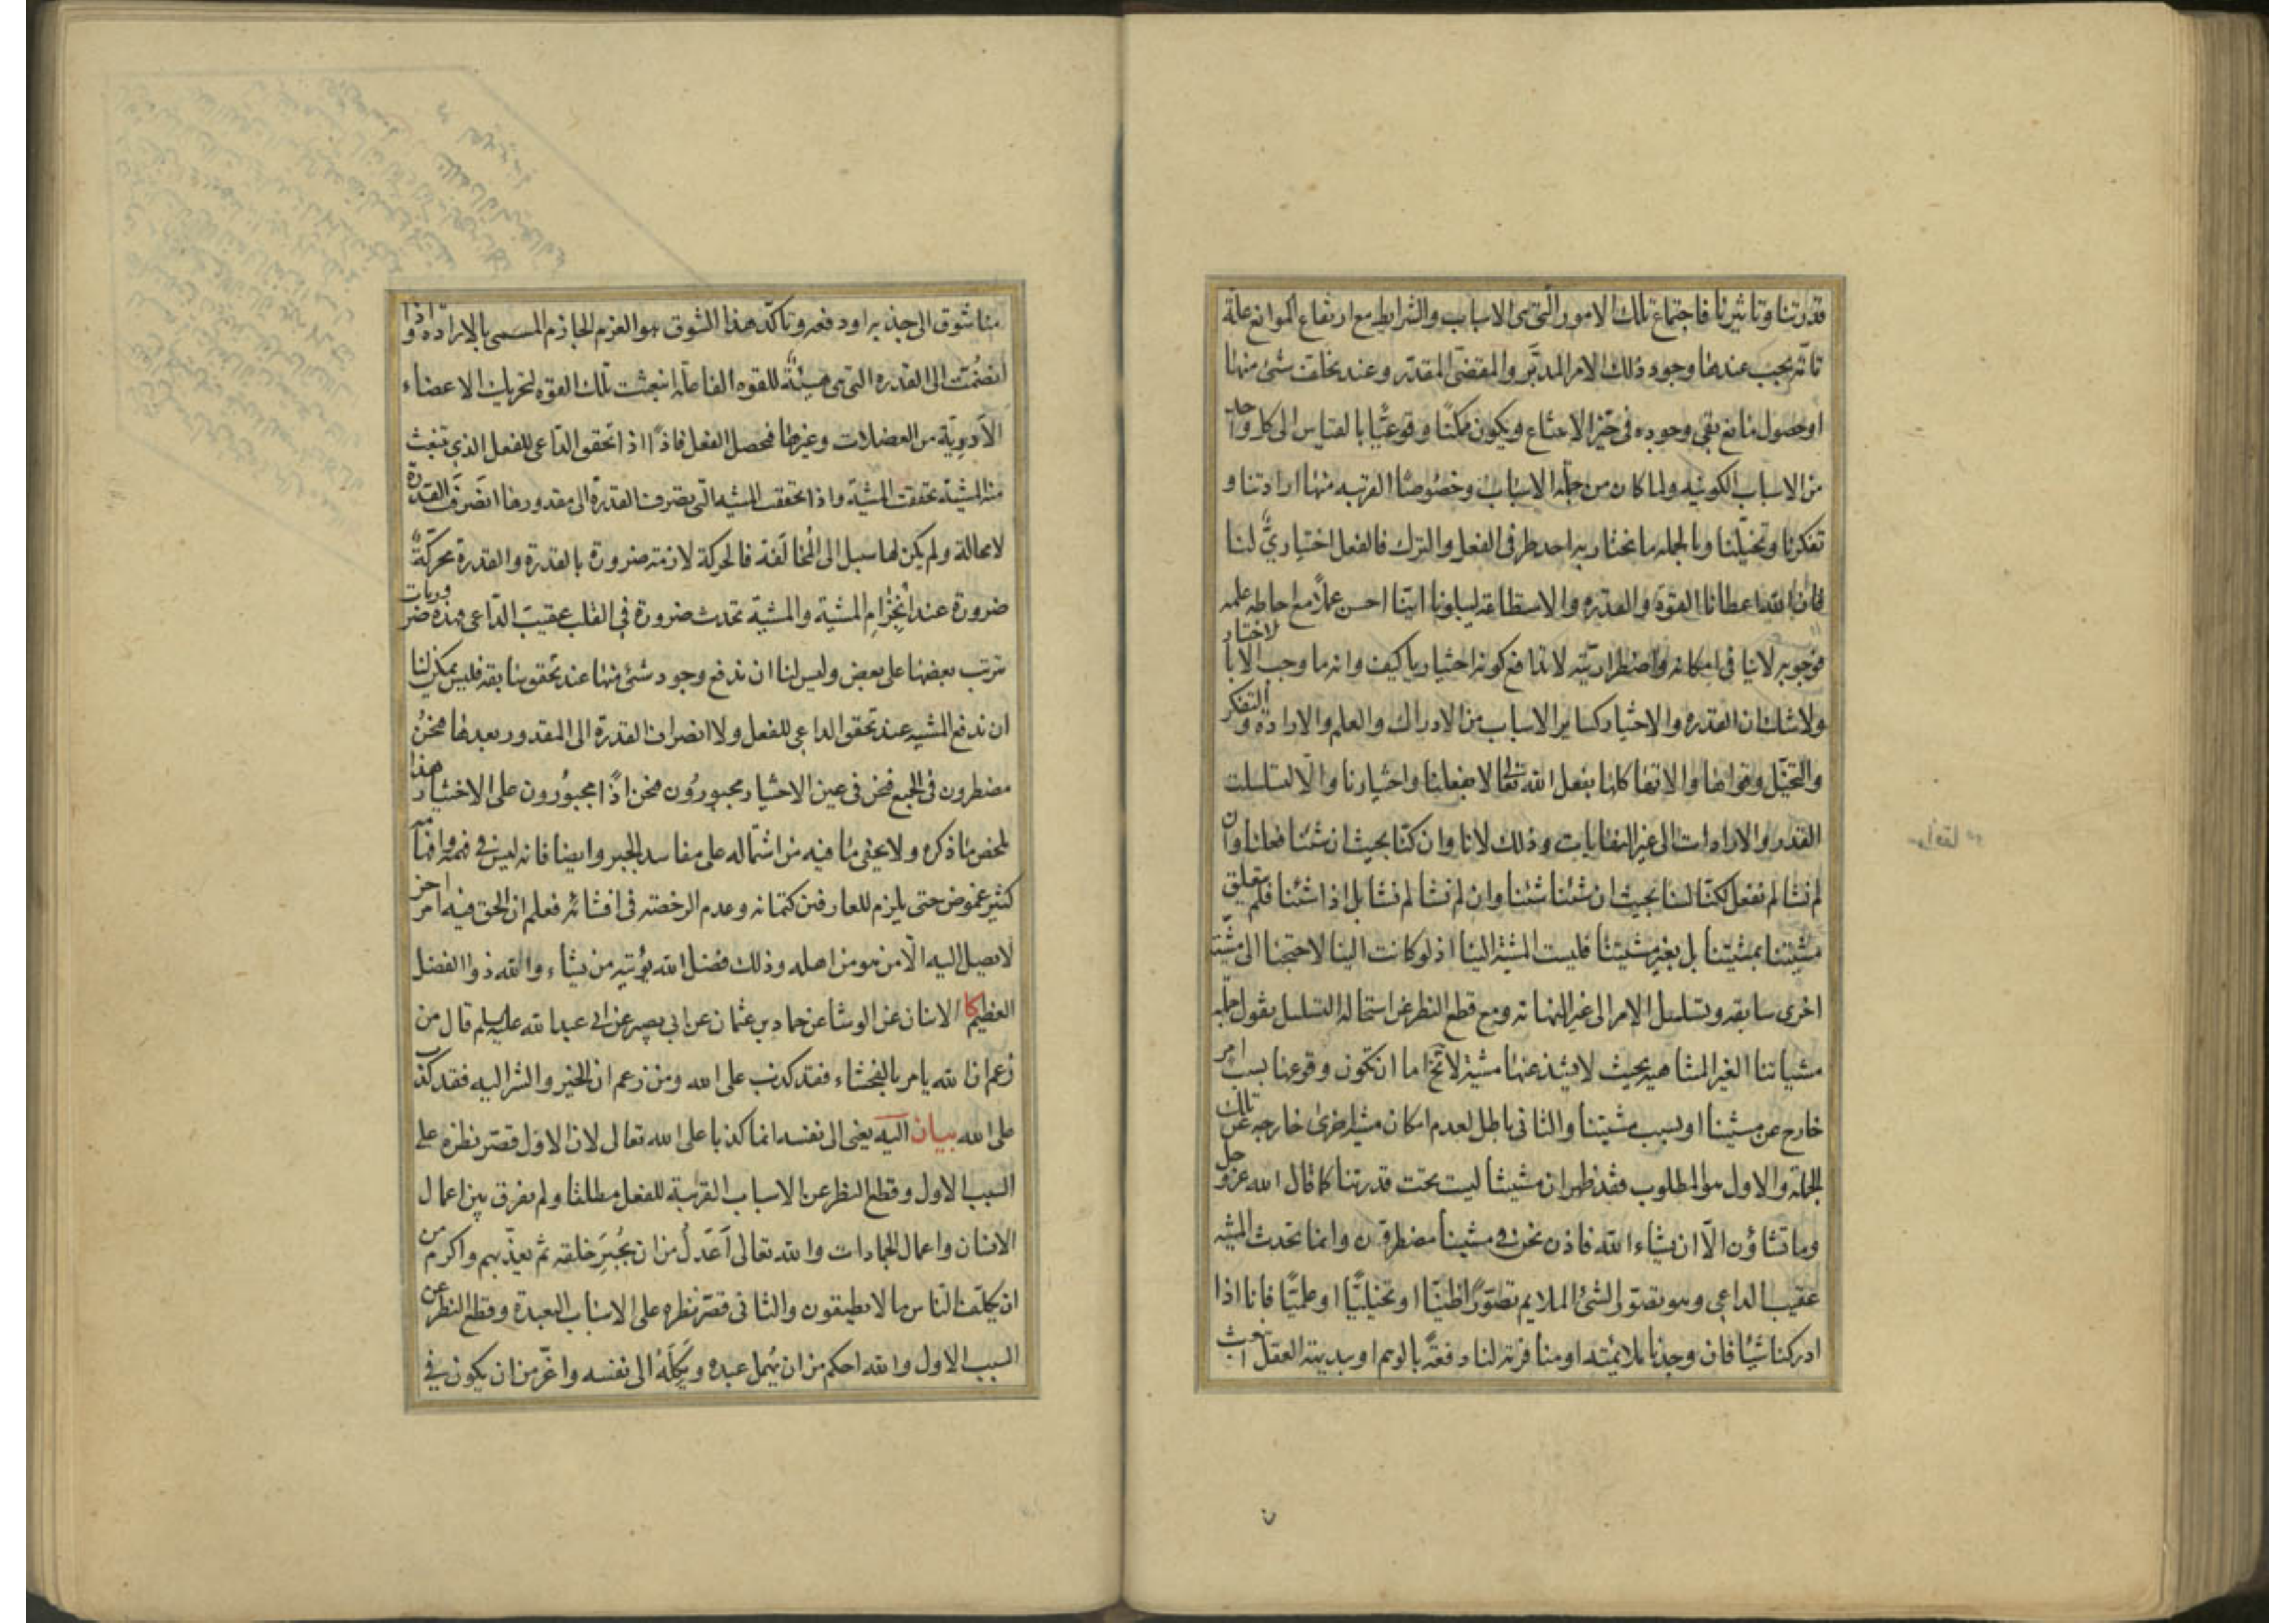 قدرتنا وتاثيرنا فاجتماع تلك الامور التي هي الاسباب والشرايط مع ارتفاع الموانع علة
تامّة يجب عندها وجود ذلك الامر المدبّر والمقضىّ المقدّر وعند تخلف شئ منها
او حصول مانع بقى وجوده في حيّز الامتناع ويكون ممكنًا وقوعيًّا بالقياس الى كل واحد
من الاسباب الكونيه ولما كان من جملة الاسباب وخصوصًا القريبه منها ارادتنا و
تفكرنا وتخيّلنا وبالجمله ما نختار به احد طرفى الفعل والترك فالفعل اختيارىّ لنا
فان الله اعطانا القوّة والقدره والاستطاعة ليبلونا ايّنا احسن عملاً مع احاطة علمه
فوجوبه لا ينافى امكانه واضطراريّته لا تدافع كونه اختياريا كيف وانه ما وجب الا بالاختيار
ولا شك ان القدره والاختيار كساير الاسباب من الادراك والعلم والارادة والتفكر
والتخيّل وقواها والاتها كلها بفعل الله تعالى لا بفعلنا واختيارنا والّا لتسلسلت
القدر والارادات الى غير النهايات وذلك لانا وان كنّا بحيث ان شئنا فعلنا وان
لم نشا لم نفعل لكنّا لسنا بحيث ان شئنا شئنا وان لم نشا لم نشا بل اذا شئنا فلم يتعلق
مشيتنا بمشيّتنا بل بغير مشيتنا فليست المشيّة الينا اذ لو كانت الينا لاحتجنا الى مشيّة
اخرى سابقه وتسلسل الامر الى غير النهاية ومع قطع النظر عن استحالة التسلسل نقول جملة
مشياتنا الغير المتناهيه بحيث لا يشذ عنها مشيّة لا تخ اما ان تكون وقوعها بسبب امر
خارج عن مشيتنا او بسبب مشيتنا والثانى باطل لعدم امكان مشية اخرى خارجه عن تلك
الجملة والاول هو المطلوب فقد ظهر ان مشيتنا ليست تحت قدرتنا كما قال الله عز وجل
وما تشاؤن الّا ان يشاء الله فاذن نحن في مشيتنا مضطرون وانما تحدث المشيه
عقيب الداعى وهو تصوّر الشئ الملايم تصوّرًا ظنيّا او تخيليًّا او علميًّا فانا اذا
ادركنا شيًا فان وجدنا ملائمته او منافرته لنا دفعةً بالوهم او ببديهة العقل انبعث
منا شوق الى جذبه او دفعه وتاكّد هذا الشوق هو العزم الجازم المسمى بالارادة واذا
انضمّت الى القدره التى هى هيئة للقوه الفاعله انبعثت تلك القوّه لتحريك الاعضاء
الادويّة من العضلات وغيرها فحصل الفعل فاذًا اذا تحقق الدّاعى للفعل الذى تنبعث
منه المشيّة تحققت المشيّة واذا تحققت المشيه التى تصرف القدرة الى مقدورها انصرفت القدرة
لا محالة ولم يكن لها سبيل الى المخالفة فالحركة لازمة ضرورة بالقدرة والقدرة محركةً
ضرورة عند انجزام المشية والمشيّة تحدث ضرورة في القلب عقيب الدّاعى وهذه ضروريات
تترتب بعضها على بعض وليس لنا ان ندفع وجود شئ منها عند تحقق سابقه فليس يمكن لنا
ان ندفع المشيه عند تحقق الداعى للفعل ولا انصراف القدرة الى المقدور بعدها فنحن
مضطرون في الجميع فنحن في عين الاختيار مجبورون فنحن اذًا مجبورون على الاختيار هذا
ملخص ما ذكره ولا يخفى ما فيه من اشتماله على مفاسد الجبر وايضا فانه ليس في فهمه وافهامه
كثير غموض حتى يلزم للعارفين كتمانه وعدم الرخصة في افشائه فعلم ان الحق فيه امر اخر
لا يصل اليه الّا من هو من اهله وذلك فضل الله يؤتيه من يشاء والله ذو الفضل
العظيم كا الاثنان عن الوشا عن حماد بن عثمان عن ابى بصير عن ابى عبد الله عليه السلم قال من
زعم ان الله يامر بالفحشاء فقد كذب على الله ومن زعم ان الخير والشر اليه فقد كذب
على الله بيان اليه يعنى الى نفسه انما كذبا على الله تعالى لان الاول قصّر نظره على
السبب الاول وقطع النظر عن الاسباب القريبة للفعل مطلقا ولم يفرق بين اعمال
الانسان واعمال الجمادات والله تعالى اَعدلُ من ان يُجبِرَ خلقه ثم يعذّبهم واكرم من
ان يكلّف الناس ما لا يطيقون والثانى قصّر نظره على الاسباب البعيدة وقطع النظر عن
السبب الاول والله احكم من ان يُهمل عبده ويَكِلَهُ الى نفسه واعزّ من ان يكون في